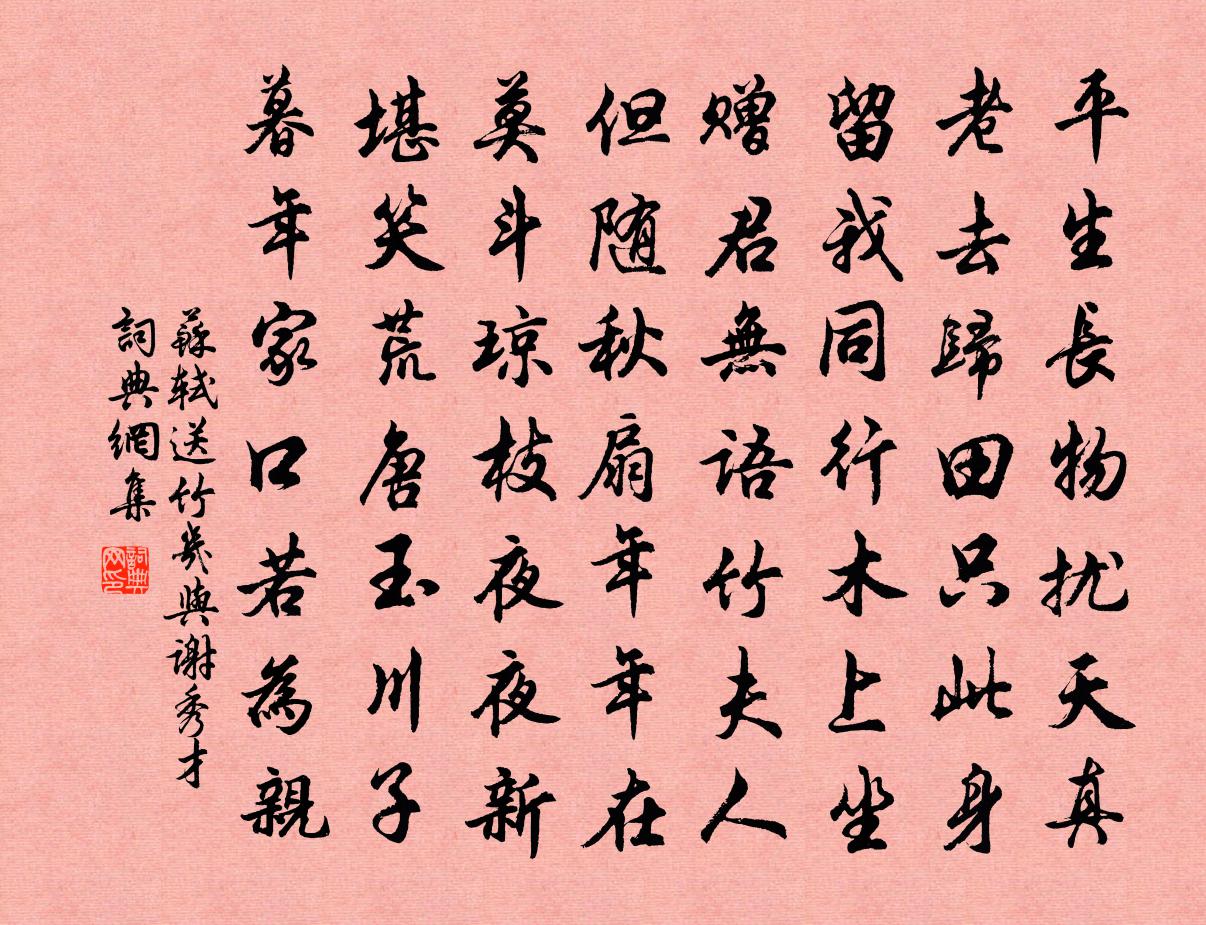 平生長物扰天真
老去歸田只此身
留我同行木上坐
赠君無語竹夫人
但随秋扇年年在
莫斗琼枝夜夜新
堪笑荒唐玉川子
暮年家口若為親
蘇轼送竹幾與谢秀才
詞典網集
詞典网印